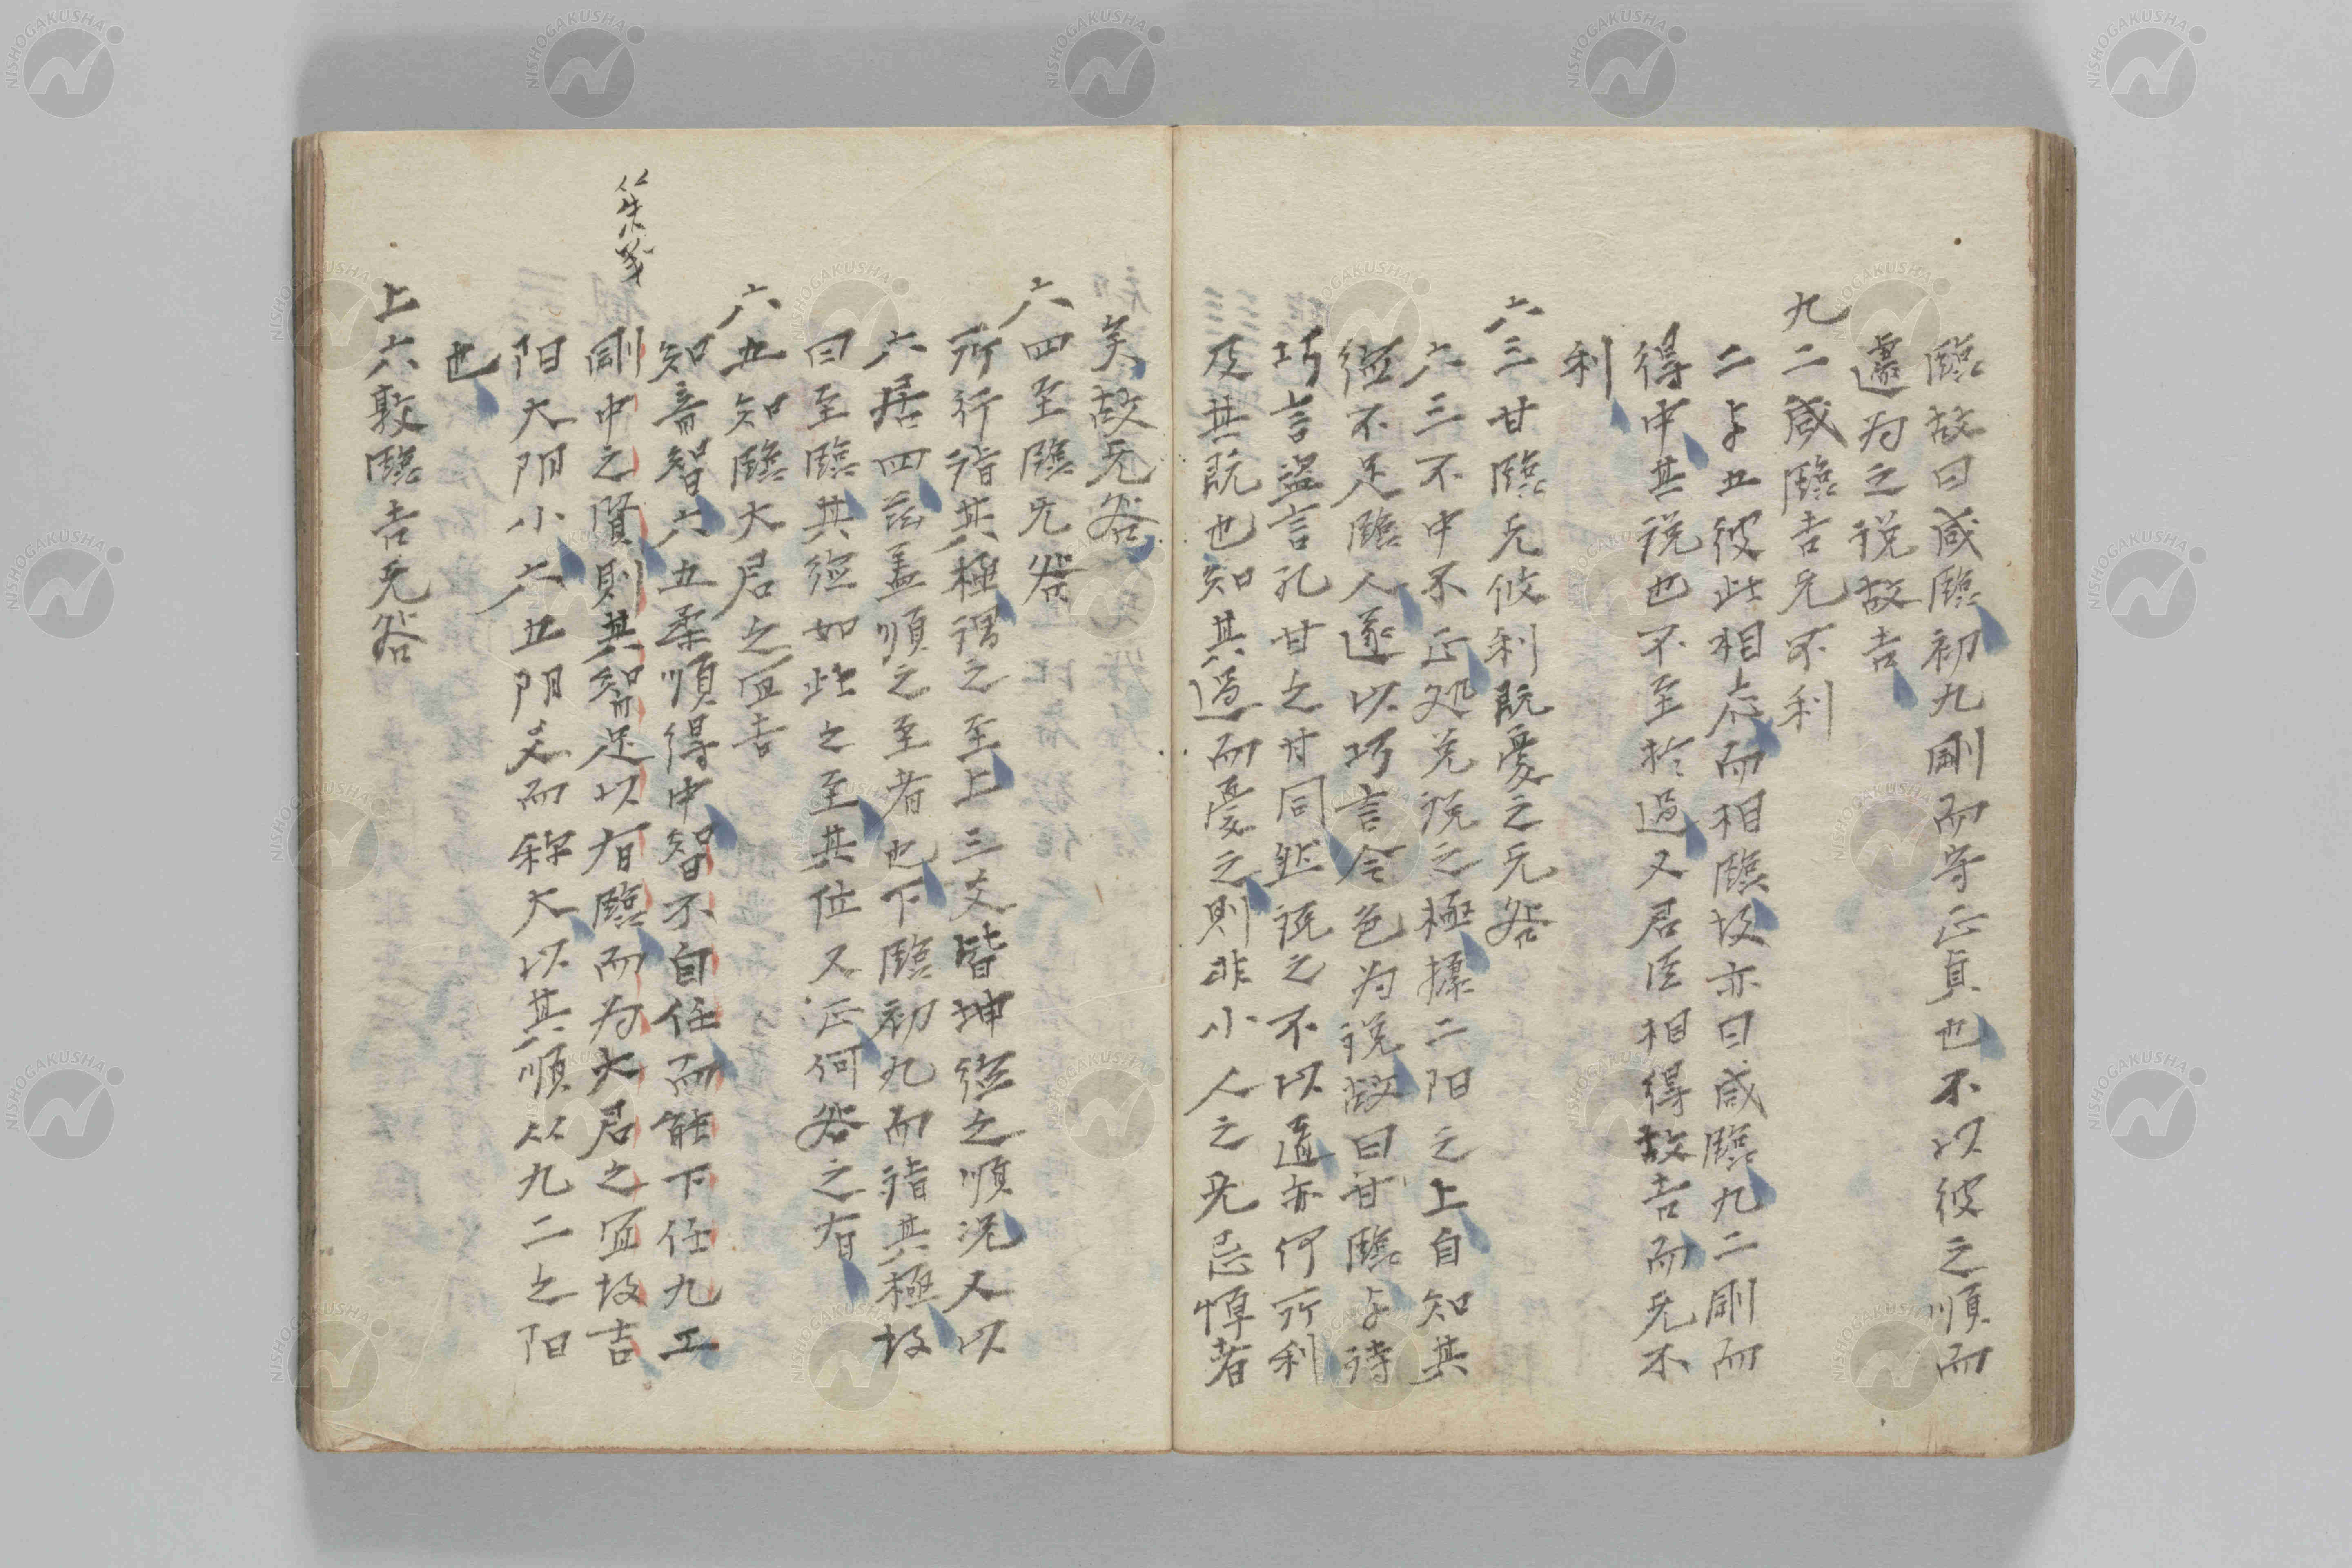 臨故曰咸臨初九剛而守正貞也不以彼之順而
遽为之说故吉
九二咸臨吉无不利
二与五彼此相应而相臨故亦曰咸臨九二剛而
得中其说也不至於過又居臣相得故吉而无不
利
六三甘臨无攸利既憂之无咎
六三不中不正処兑说之極據二阳之上自知其
德不足臨人遂以巧言令色为说故曰甘臨与诗
巧言盗言孔甘之甘同然说之不以道亦何所利
及其既也知其過而憂之則非小人之无忌憚者
矣故无咎
六四至臨无咎
所行詣其極謂之至上三爻皆坤德之順况又以
六居四茲盖順之至者也下臨初九而詣其極故
曰至臨其德如此之至其位又正何咎之有
六五知臨大君之宜吉
知音智六五柔順得中智不自任而能下任九二
剛中之賢則其智足以有臨而为大君之宜故吉
阳大阴小六五阴爻而称大以其順从九二之阳
也
上六敦臨吉无咎